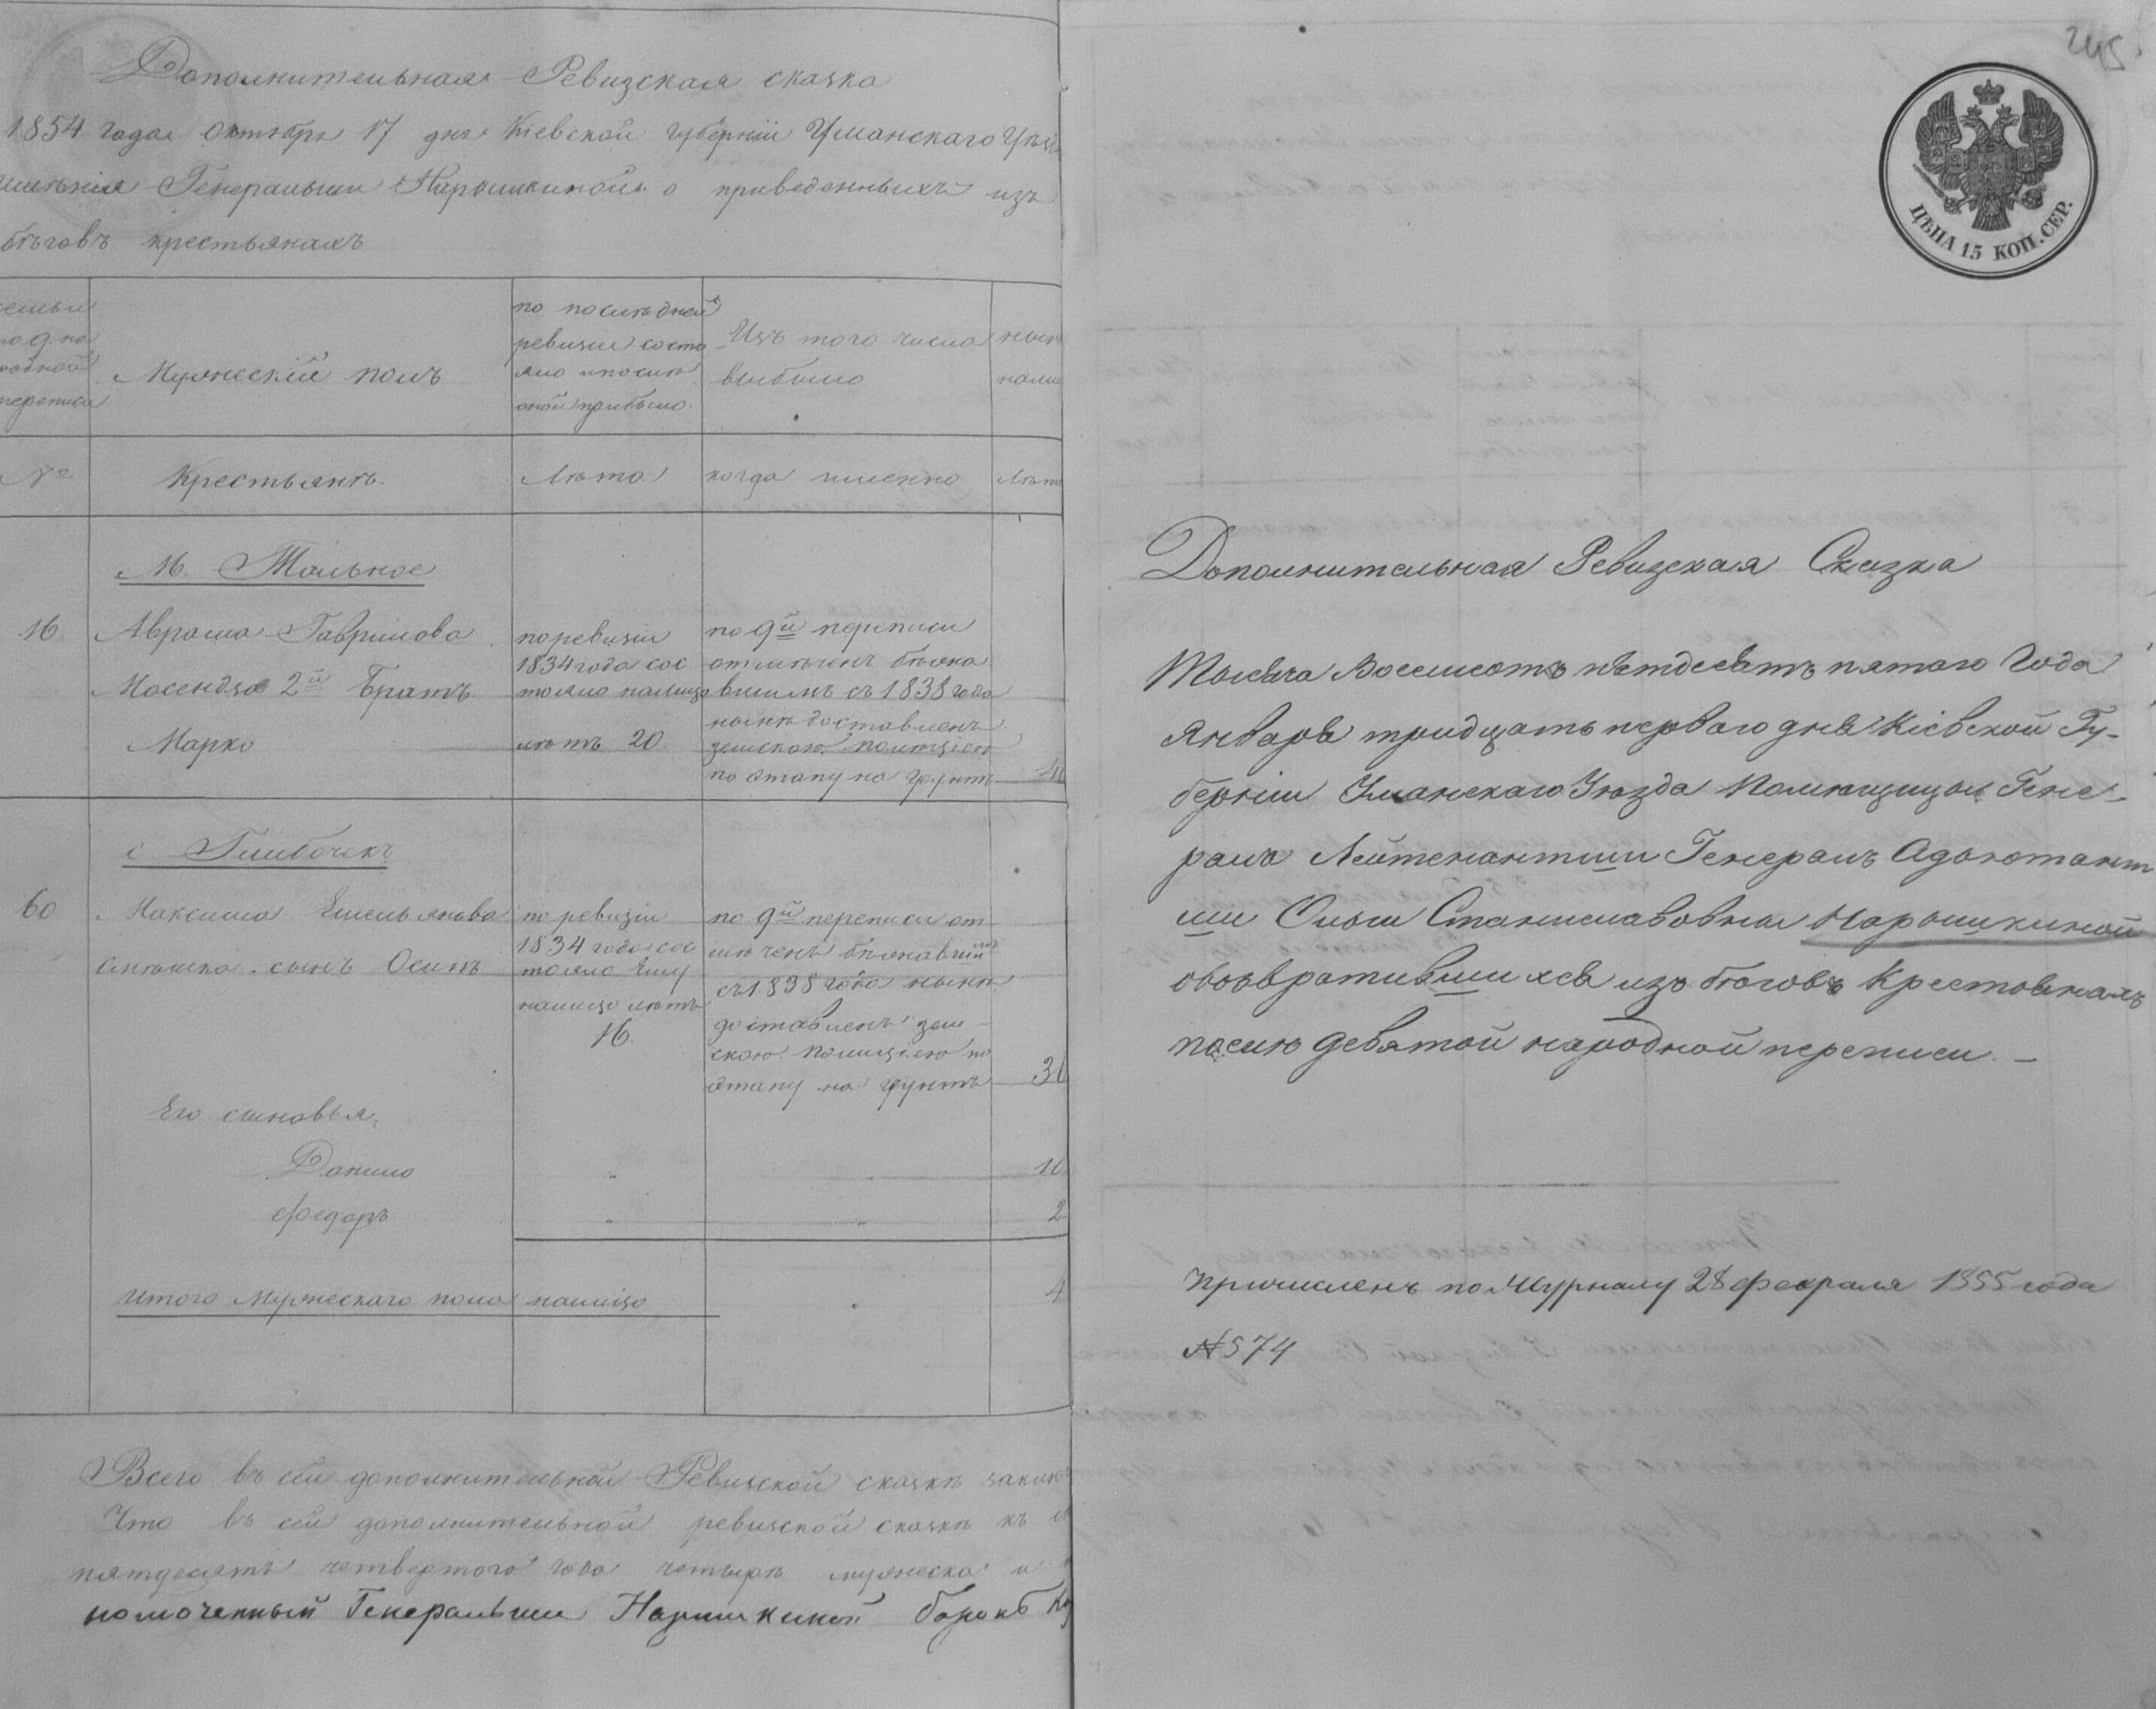 Дополнительная Ревизская сказка
1854 года Октября 17 дня Кіевской губерніи Уманскаго
имѣнія Генеральши Нарышкиной о приведенныхъ изъ
бѣговъ крестьянахъ
семьи
родной
переписи
Мужескій полъ
по послѣдней
ревизіи состо
яло и послѣ
оной прибыло.
Изъ того числа
выбыло
№
Крестьянъ.
Лѣта
когда именно
М. Тальное
16.
Аврама Гаврилова
Масендза 2й братъ
Марко
по ревизіи
1834 года сос
тояло налицо
лѣтъ 20
по 9й переписи
отмѣченъ бѣжа
вшимъ съ 1838 года
нынѣ доставленъ
земскою полиціею
по этапу на грунтъ
с Глибочекъ
60
Максима Емельянова
сынъ Осипъ
по ревизіи
1834 года сос
тояло ему
налицо лѣтъ
16.
по 9й переписи от
мѣченъ бѣжавшимъ
съ 1838 года нынѣ
доставленъ зем
скою полиціею по
этапу на грунтъ
Его сыновья.
Данило
"
"
10
Федоръ
"
"
2
Итого мужескаго пола налицо
4
Всего въ сей дополнительной Ревизской сказкѣ
Что въ сей дополнительной ревизской сказкѣ къ
пятдесятъ четвертого года четыре мужеска
номоченный Генеральши Нарышкиной
245.
ЦѢНА 15 КОП. СЕР.
Дополнительная Ревизская Сказка
Тысяча Восемсотъ пятдесятъ пятаго Года
Января тридцать перваго дня Кіевской Гу-
берніи Уманскаго Уѣзда Помѣщицы Гене-
ралъ Лейтенантши Генералъ Адъютант
ши Ольги Станиславовны Нарышкиной
овозвратившихся изъ бѣговъ Крестьянахъ
послѣ девятой народной переписи. –
Причисленъ по Журналу 28 февраля 1855 года
№ 574